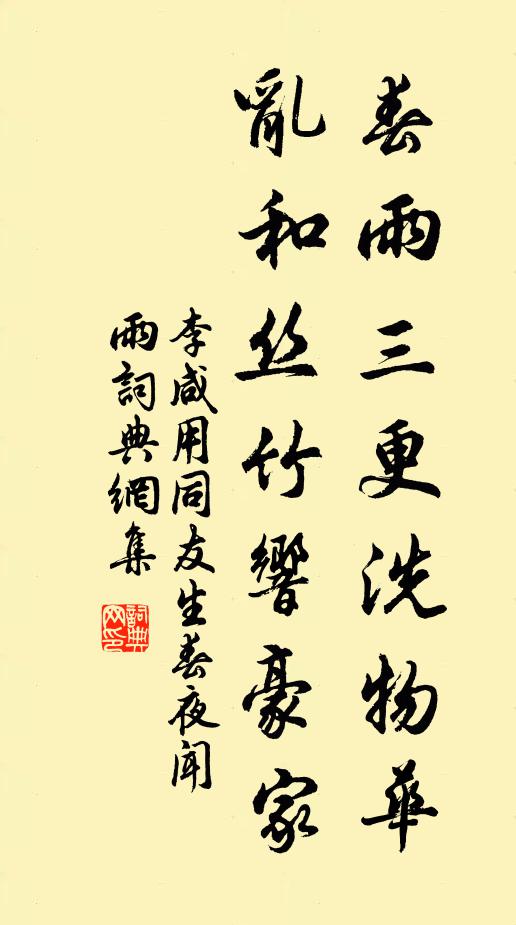 春雨三更洗物華
亂和丝竹響豪家
李咸用同友生春夜闻
雨詞典網集
詞典网印